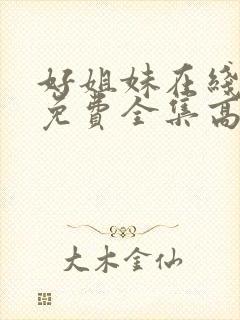 好姐妹在线
免费全集高
大木金仙